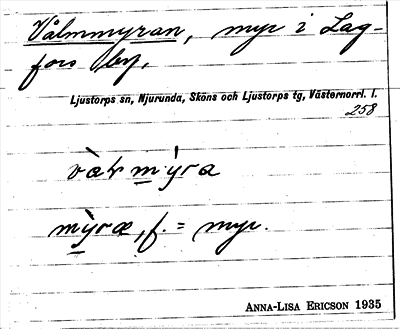 Vålmmyran, myr i Lag-
fors by.
Ljustorps sn, Njurunda, Sköns och Ljustorps tg, Västernorrl. l.
258
myræ, f. = myr.
ANNA-LISA ERICSON 1935